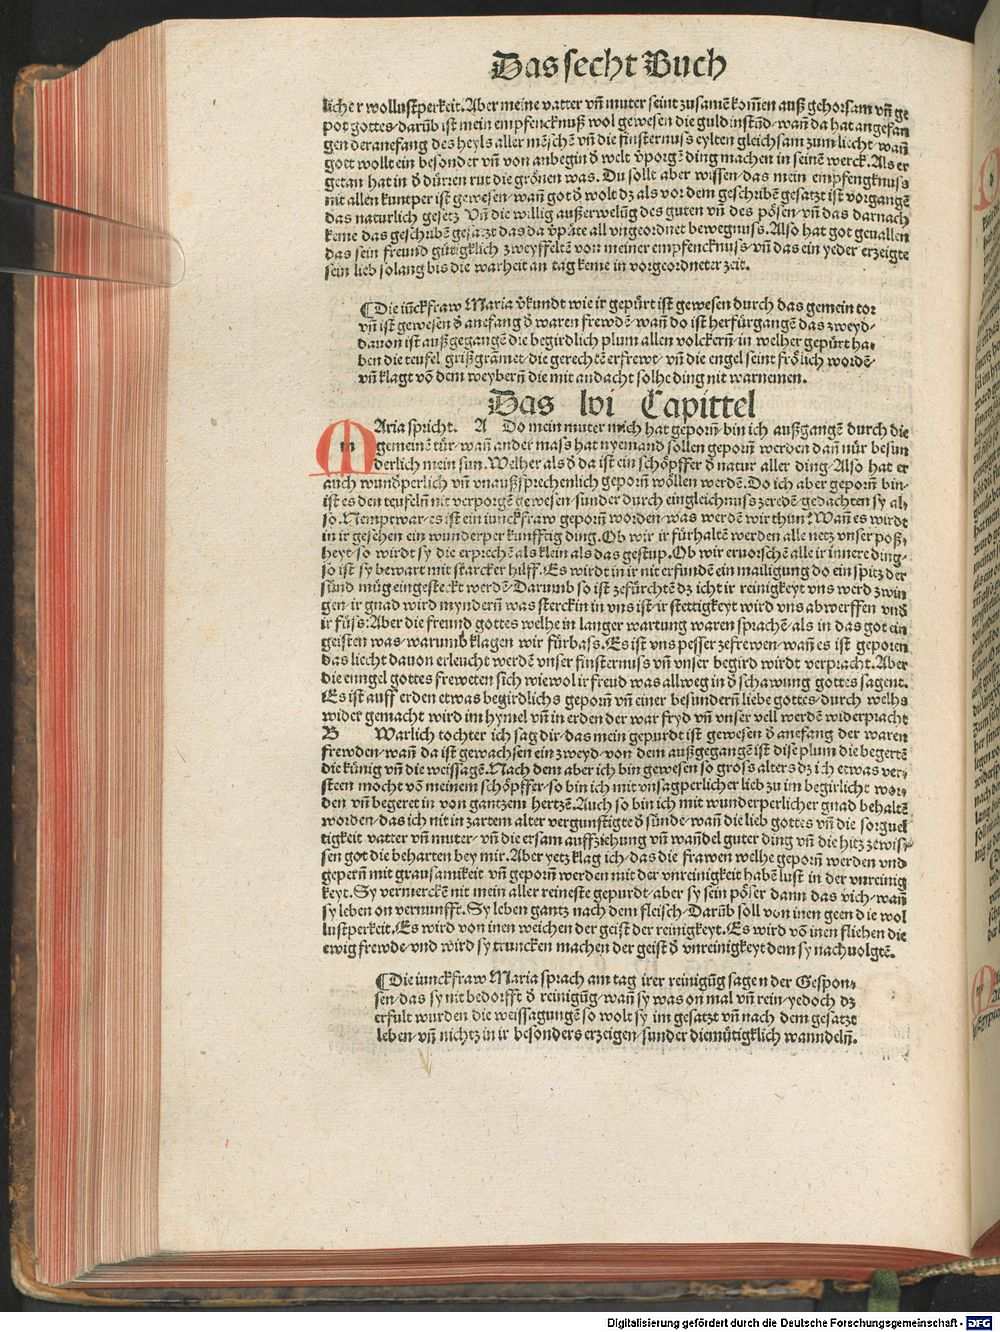 Das secht Buch
licher wollustperkeit. Aber meine vatter vñ muter seint zusamē komēn auß gehorsam vñ ge
pot gottes/ darūb ist mein empfencknuß wol gewesen die guldin stūd/ wañ da hat angefan
gen der anefang des heyls aller mēschē vñ die finsternuss eylten gleichsam zum liecht/ wañ
gott wollt ein besonder vñ von anbegin d̄ welt v̄porgē ding machen in seinē werck. Als er
getan hat in d̄ dürren rut die grönen was. Du sollt aber wissen/ das mein empfengknuss
nit allen kuntper ist gewesen/ wañ got d̄ wolt dz als vor dem geschribē gesatzt ist vorgangē
das naturlich gesetz Vñ die willig außerwelūg des guten vñ des pösen/ vñ das darnach
keme das geschribē gesatzt das da v̄päte all vngeordnet bewegnuss. Also hat got geuallen
das sein freund gütigklich zweyffeltē von meiner empfencknuss/ vñ das ein yeder erzeigte
sein lieb solang bis die warheit an tag keme in vorgeordneter zeit.
¶ Die iūckfraw Maria v̄kundt wie ir gepürt ist gewesen durch das gemein tor
vñ ist gewesen d̄ anefang d̄ waren frewdē/ wañ do ist herfürgangē das zweyd/
dauon ist außgegangē die begirdlich plum allen volckern̄/ in welher gepürt ha/
ben die teufel grißgramet/ die gerechtē erfrewt/ vñ die engel seint frölich wordē/
vñ klagt vō dem weybern̄ die mit andacht solhe ding nit warnemen.
Das lvi Capittel
MAria spricht. A Do mein muter mich hat geporn̄/ bin ich außgangē durch die
gemeinē tür/ wañ ander mass hat nyemand sollen geporn̄ werden dañ nür besun
derlich mein sun. Welher als d̄ da ist ein schöpffer d̄ natur aller ding/ Also hat er
auch wund̄perlich vñ vnaußsprechenlich geporn̄ wöllen werdē. Do ich aber geporn̄ bin/
ist es den teufeln̄ nit verporgē gewesen/ sunder durch ein gleichnuss zeredē/ gedachten sy al/
so. Nempt war/ es ist ein iunckfraw geporn̄ worden/ was werdē wir thun? Wañ es wirdt
in ir gesehen ein wunderper kunfftig ding. Ob wir ir fürhaltē werden alle netz vnser poß/
heyt/ so wirdt sy die erprechē als klein als das gestup. Ob wir eruorschē alle ir innere ding/
so ist sy bewart mit starcker hilff. Es wirdt in ir nit erfundē ein mailigung do ein spitz der
sünd müg eingesteckt werdē/ Darumb so ist zefürchtē dz icht ir reinigkeyt vns werd zwin
gen/ ir gnad wird myndern̄ was sterck in vns ist/ ir stettigkeyt wird vns abwerffen vnd
ir füss: Aber die freund gottes welhe in langer wartung waren sprachē/ als in das got ein
geisten was/ warumb klagen wir fürbass. Es ist vns pesser zefrewen/ wañ es ist geporen
das liecht dauon erleucht werdē vnser finsternuss vñ vnser begird wirdt verpracht. Aber
die enngel gottes freweten sich wiewol ir freud was allweg in d̄ schawung gottes sagent.
Es ist auff erden etwas begirdlichs geporn̄ vñ einer besundern̄ liebe gottes/ durch welhs
wider gemacht wird im hymel vñ in erden der war fryd vñ vnser vell werdē widerpracht
B Warlich tochter ich sag dir/ das mein gepurdt ist gewesen d̄ anefang der waren
frewden/ wañ da ist gewachsen ein zweyd/ von dem außgegangē ist dise plum die begertē
die künig vñ die weissagē. Nach dem aber ich bin gewesen so gross alters dz ich etwas ver/
steen mocht vō meinem schöpffer/ so bin ich mit vnsagperlicher lieb zu im begirlicht wor/
den vñ begeret in von gantzem hertzē. Auch so bin ich mit wunderperlicher gnad behaltē
worden/ das ich nit in zartem alter vergunstigte d̄ sünde/ wañ die lieb gottes vñ die sorguel
tigkeit vatter vñ muter/ vñ die ersam auffziehung vñ wañdel guter ding vñ die hitz zewis/
sen got die beharten bey mir. Aber yetz klag ich/ das die frawen welhe geporn̄ werden vnd
gepern̄ mit grausamikeit vñ geporn̄ werden mit der vnreinigkeit habēlust in der vnreinig
keyt. Sy vermerckē nit mein aller reineste gepurdt/ aber sy sein pöser dann das vich/ wañ
sy leben on vernunfft. Sy leben gantz nach dem fleisch/ Darūb soll von inen geen die wol
lustperkeit. Es wird von inen weichen der geist der reinigkeyt. Es wird vō inen fliehen die
ewig frewde/ vnd wird sy truncken machen der geist d̄ vnreinigkeyt dem sy nachuolgtē.
¶ Die iunckfraw Maria sprach am tag irer reinigūg sagen der Gespon/
sen/ das sy nit bedorfft d̄ reinigūg/ wañ sy was on mal vñ rein/ yedoch dz
erfült wurden die weissagungē so wolt sy im gesatzt vñ nach dem gesatzt
leben/ vñ nichtz in ir besonders erzeigen/ sunder diemütigklich wanndeln̄.
Digitalisierung gefördert durch die Deutsche Forschungsgemeinschaft - DFG